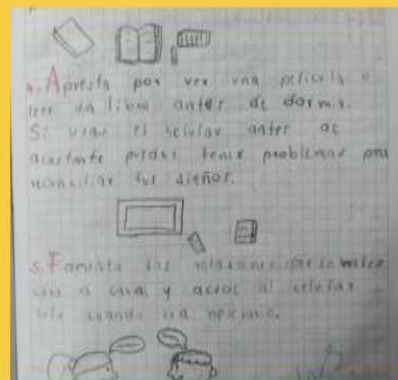 4. Apuesta por ver una película o
leer un libro antes de dormir.
Si usas el celular antes de
acostarte puedes tener problemas para
tus sueños.
5. Fomenta las relaciones
cara a cara y acude al celular
solo cuando sea